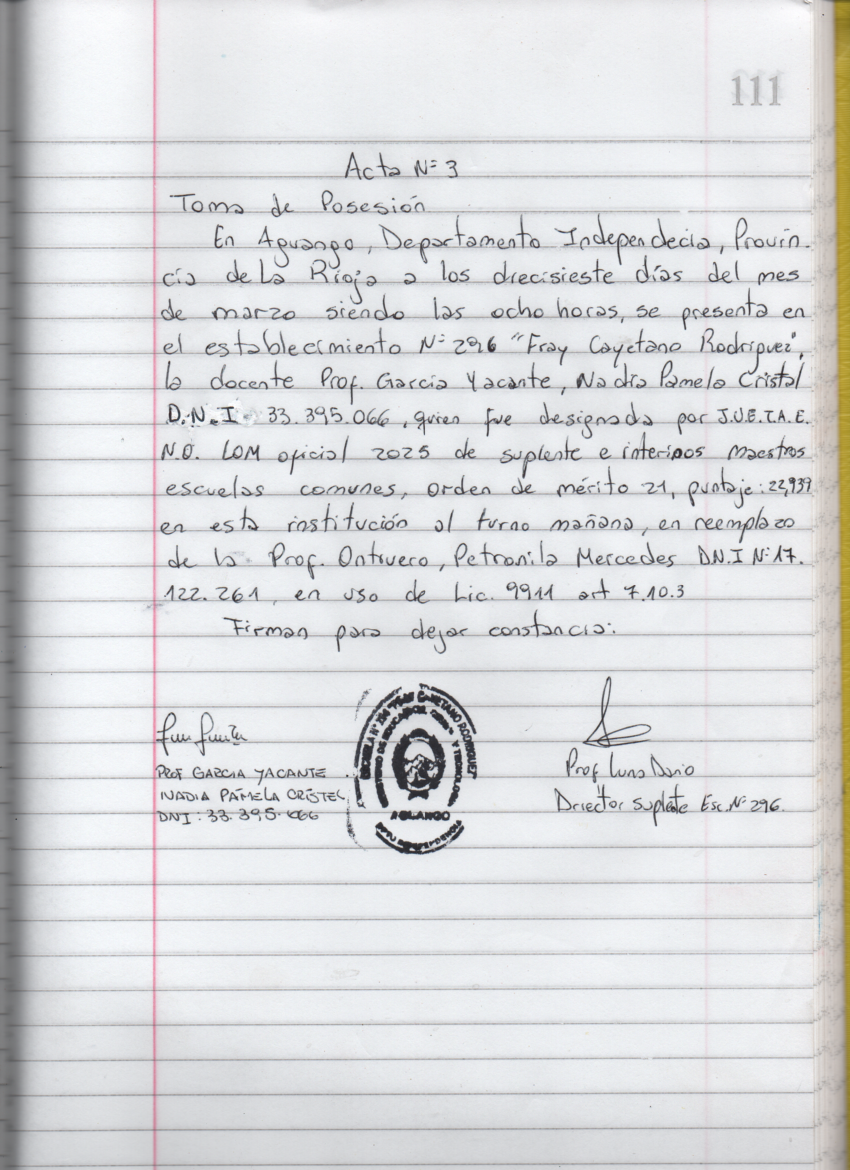 111
Acta Nº 3
Toma de Posesión
En Aguango, Departamento Independecia, Provin-
cia de La Rioja a los diecisieste días del mes
de marzo siendo las ocho horas, se presenta en
el establecimiento Nº 296 "Fray Cayetano Rodriguez",
la docente Prof. García Yacante, Nadia Pamela Cristal
D.N.I 33.395.066, quien fue designada por J.U.E.T.A.E.
N.O. LOM oficial 2025 de suplente e interinos maestros
escuelas comunes, orden de mérito 21, puntaje: 22,939
en esta institución al turno mañana, en reemplazo
de la Prof. Ontivero, Petronila Mercedes DN.I Nº 17.
122.261, en uso de Lic. 9911 art 7.10.3
Firman para dejar constancia:
PROF GARCIA YACANTE
NADIA PAMELA CRISTEL
DNI: 33.395.066
ESCUELA Nº 296 "FRAY CAYETANO RODRIGUEZ"
MINISTERIO DE EDUCACION, CIENCIA Y TECNOLOGIA
AGUANGO
DPTO INDEPENDENCIA
Prof Luna Dario
Director Suplente Esc. Nº 296